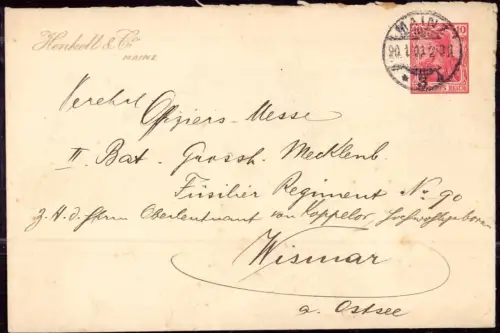 Henkell & Co
MAINZ
MAINZ
10
REICH
Verehrl Offiziers-Messe
II Bat. Grossh. Mecklenb.
Füsilier Regiment No 90
z. H. d. Herrn Oberleutnant von Koppelow, Hochwohlgeboren
Wismar
a. Ostsee